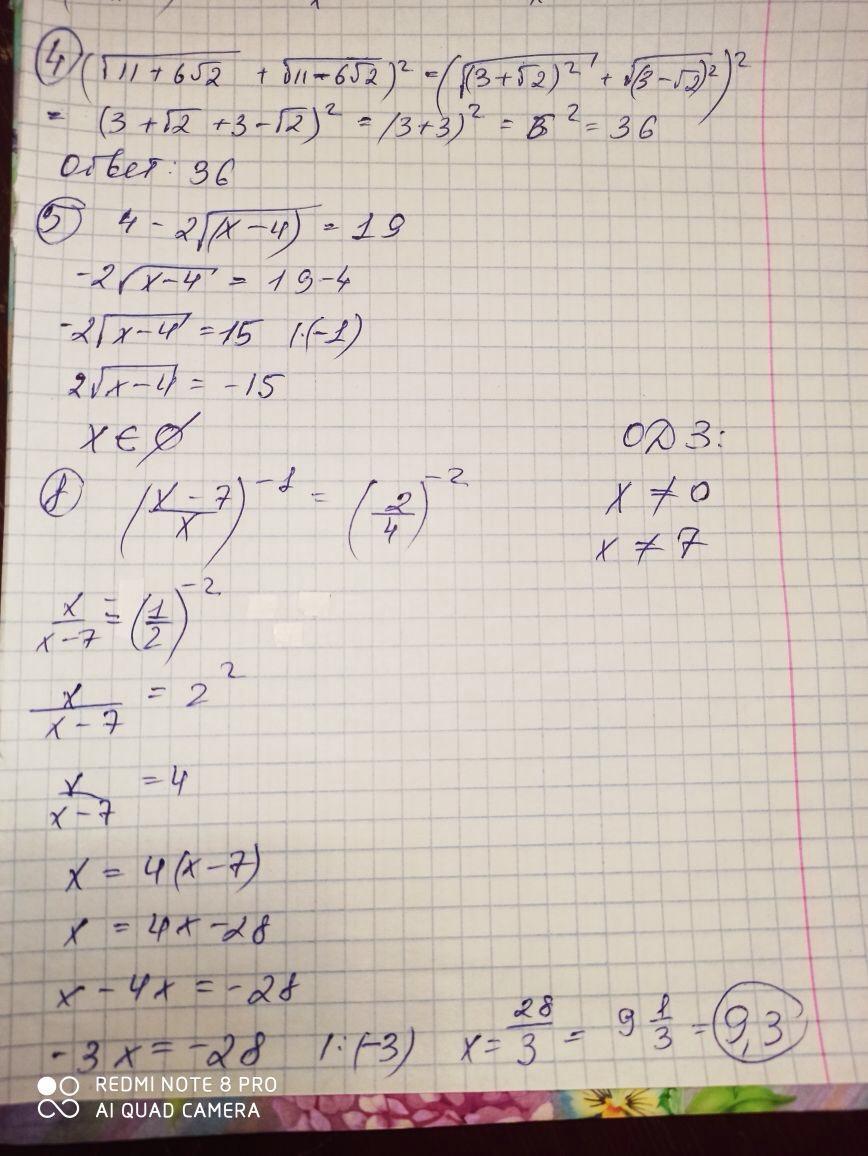 ④ (√(11 + 6√2) + √(11 - 6√2))² = (√((3+√2)²) + √((3-√2)²))²
= (3 + √2 + 3 - √2)² = (3+3)² = 6² = 36
Ответ: 36
⑤ 4 - 2√(x-4) = 19
-2√(x-4) = 19-4
-2√(x-4) = 15 |·(-1)
2√(x-4) = -15
x ∈ ∅
ОДЗ:
x ≠ 0
x ≠ 7
((x-7)/x)⁻¹ = (2/4)⁻²
x/(x-7) = (1/2)⁻²
x/(x-7) = 2²
x/(x-7) = 4
x = 4(x-7)
x = 4x-28
x - 4x = -28
-3x = -28 |:(-3) x = 28/3 = 9 1/3 = 9,3
REDMI NOTE 8 PRO
AI QUAD CAMERA